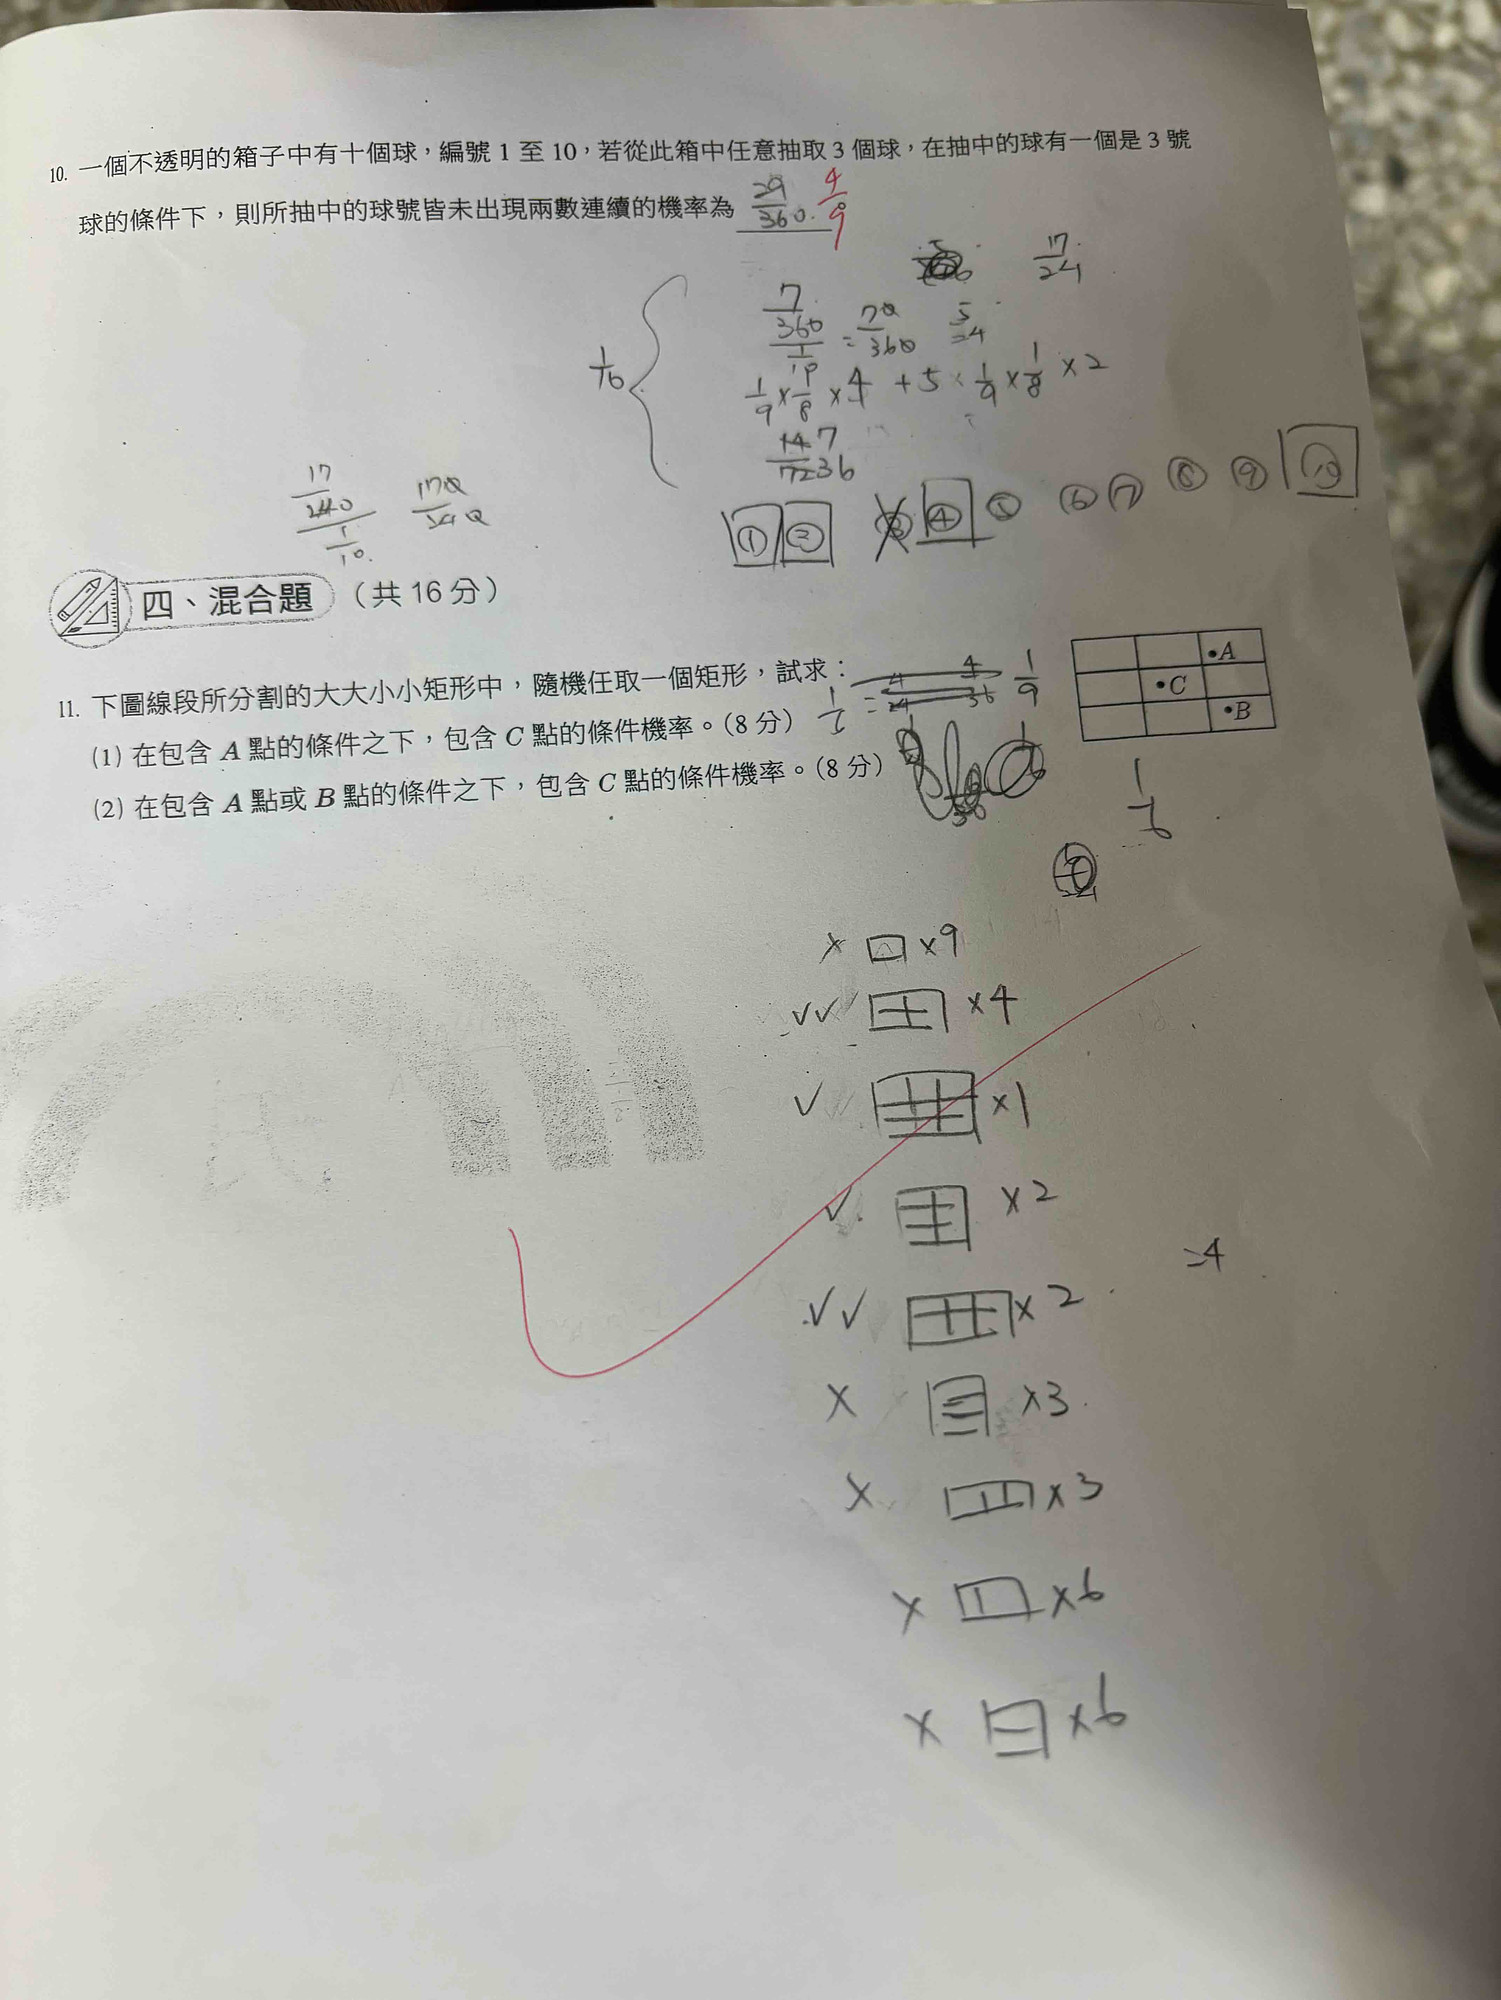 10. 一個不透明的箱子中有十個球，編號 1 至 10，若從此箱中任意抽取 3 個球，在抽中的球有一個是 3 號
球的條件下，則所抽中的球號皆未出現兩數連續的機率為 29/360. 4/9
17/24
7/360 / 1/10 = 70/360
1/10
1/9 × 1/8 × 4 + 5 × 1/9 × 1/8 × 2
14/72 7/36
17/240 / 1/10. 170/240
① ② ③ ④ ⑤ ⑥ ⑦ ⑧ ⑨ ⑩
四、混合題（共 16 分）
11. 下圖線段所分割的大大小小矩形中，隨機任取一個矩形，試求：
(1) 在包含 A 點的條件之下，包含 C 點的條件機率。(8 分)
(2) 在包含 A 點或 B 點的條件之下，包含 C 點的條件機率。(8 分)
4/36 1/9
A
C
B
1/6
× ×9
✓✓ ×4
✓ ×1
✓. ×2
=4
✓✓ ×2
× ×3
× ×3
× ×6
× ×6